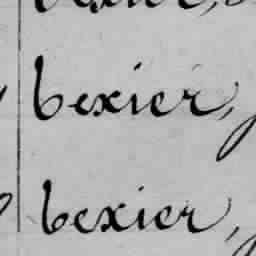 bexier,
bexier,